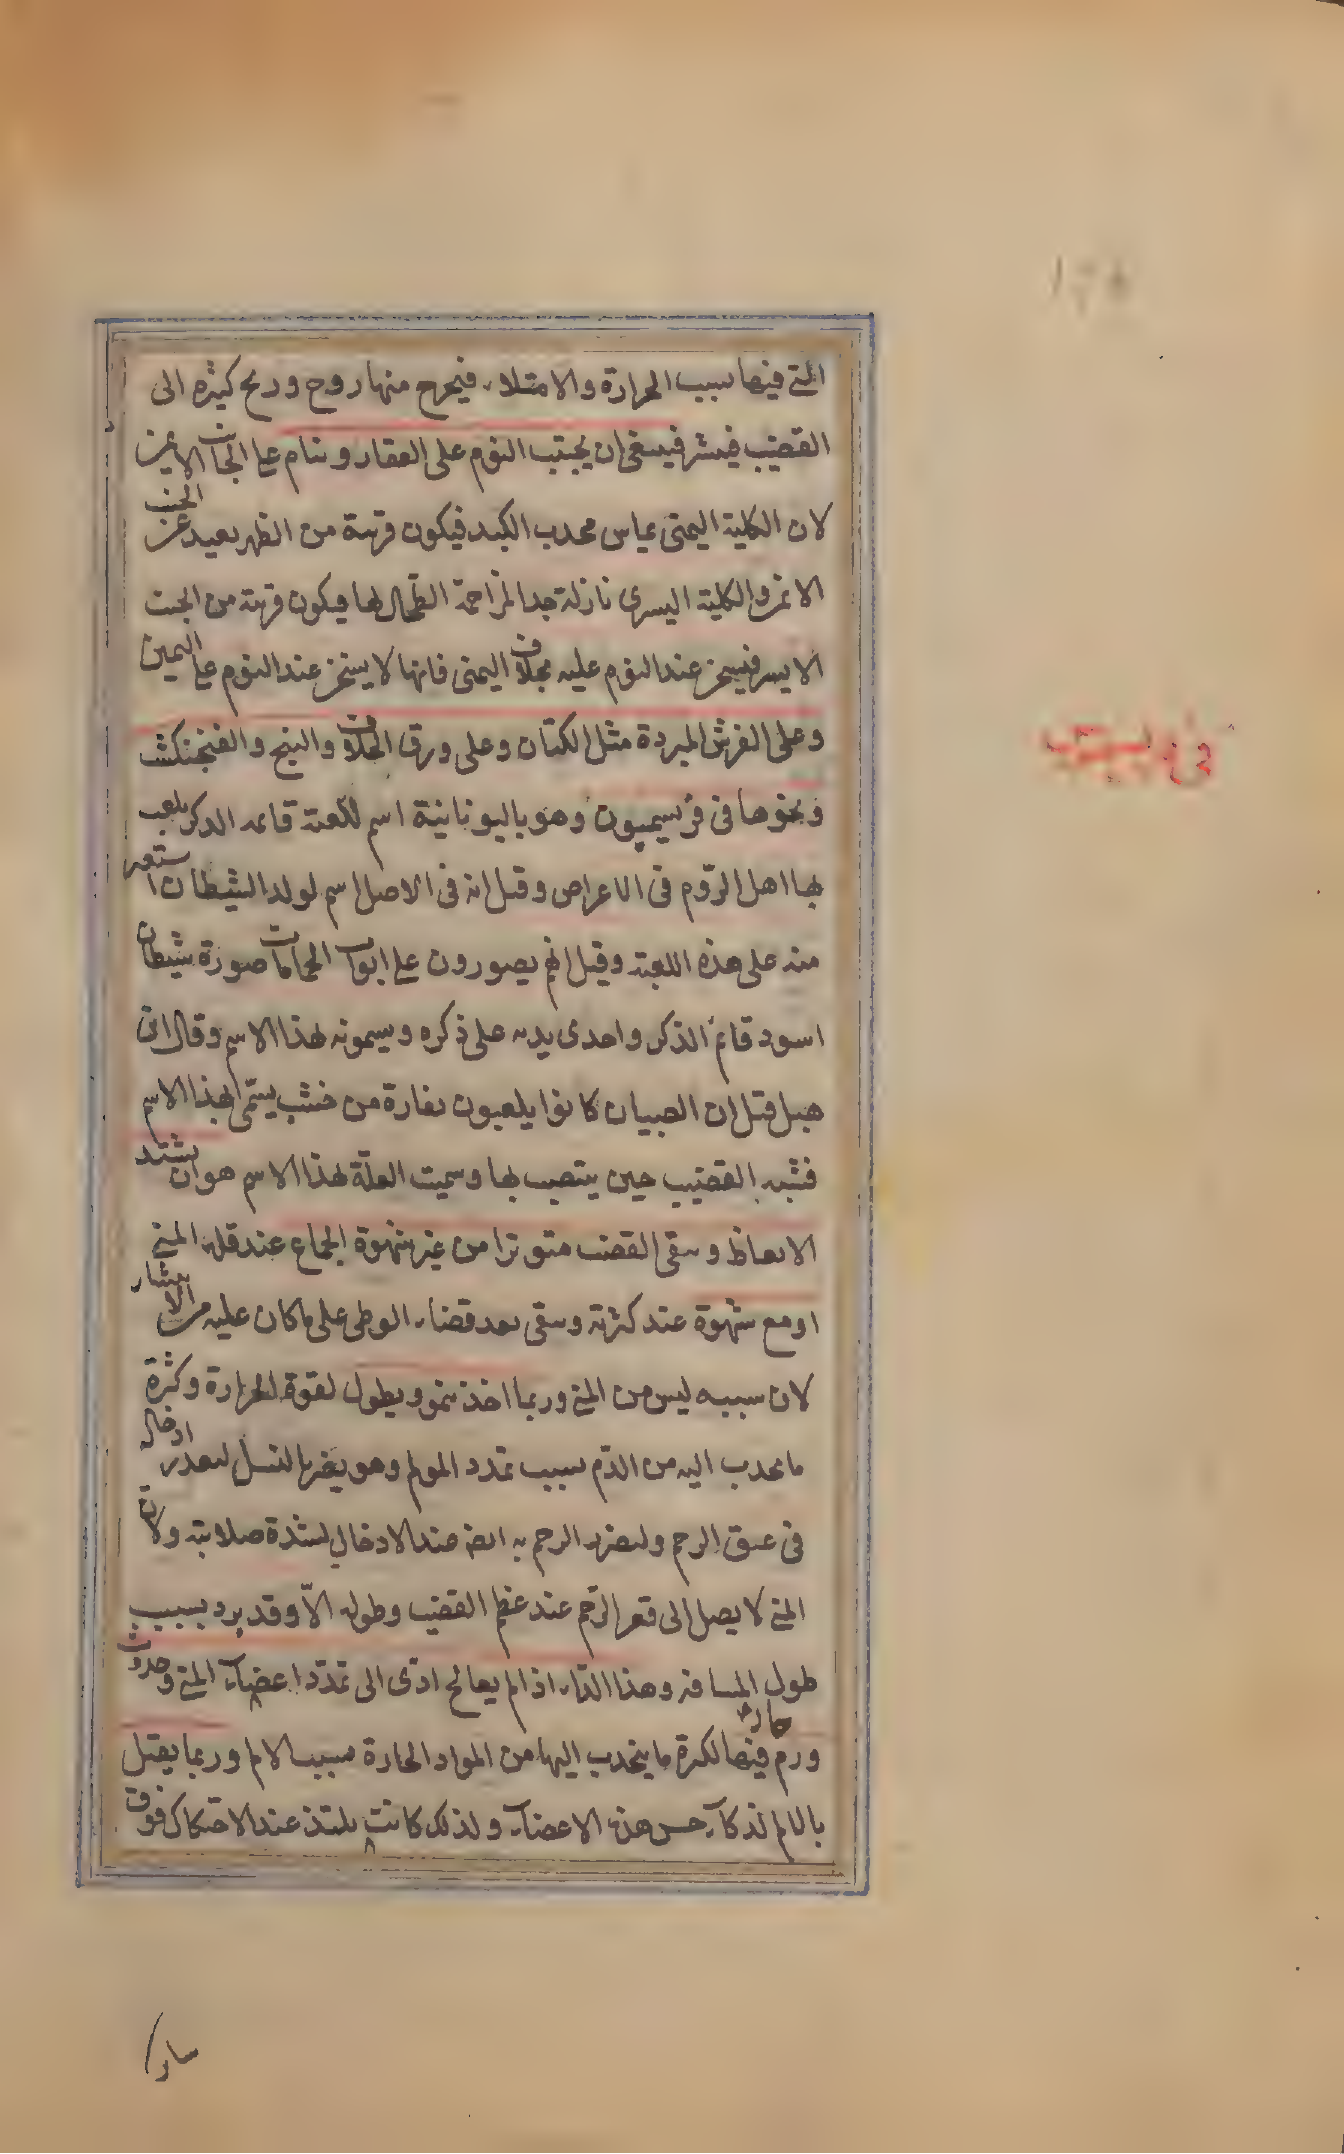 المنى فيها بسبب الحرارة والامتلاء فيخرج منها روح وريح كثيرة الى
القضيب فينشر فينبغى ان يجتنب النوم على القفار وينام على الجانب الايمن
لان الكلية اليمنى يماس محدب الكبد فيكون قريبة من الظهر بعيدة عن الجنب
الايمن والكلية اليسرى نازلة جدا لمزاحمة الطحال لها فيكون قريبة من الجنب
الايسر فيسخن عند النوم عليه بخلاف اليمنى فانها لا يسخن عند النوم على اليمين
وعلى الفرش المبردة مثل الكتان وعلى ورق الخلاف والبنج والفنجنكشت
ونحوها فى فريسيميون وهو باليونانية اسم للعبة قايمة الذكر يلعب
بها اهل الروم فى الاعراض وقيل انه فى الاصل اسم لولد الشيطان استعير
منه على هذه اللعبة وقيل انهم يصورون على ابواب الحمامات صورة شيطان
اسود قائم الذكر واحدى يديه على ذكره ويسمونه بهذا الاسم وقال ابن
هبل قيل ان الصبيان كانوا يلعبون بفارة من خشب يسمى بهذا الاسم
فشبه القضيب حين ينتصب بها وسميت العلة بهذا الاسم هو ان يشتد
الانعاظ ويبقى القضيب متوترا من غير شهوة الجماع عند قلة المنى
او مع شهوة عند كثرته ويبقى بعد قضاء الوطى على ما كان عليه من الانتشار
لان سببه ليس من المنى وربما اخذ ينمو ويطول لقوة الحرارة وكثرة
ما يجذب اليه من الدم بسبب تمدد المولم وهو يضر بالنسل لتعذر ادخاله
فى عنق الرحم ولتضرر الرحم به ايضا عند الادخال لشدة صلابته ولان
المنى لا يصل الى قعر الرحم عند عظم القضيب وطوله الا وقد برد بسبب
طول المسافة وهذا الداء اذا لم يعالج ادى الى تمدد اعضاء المنى وحدوث
ورم حار فيها لكثرة ما ينجذب اليها من المواد الحارة بسبب الالم وربما يقتل
بالالم لذكاء حس هذه الاعضاء ولذلك كانت يلتذ عند الاحتكاك فوق
ساير